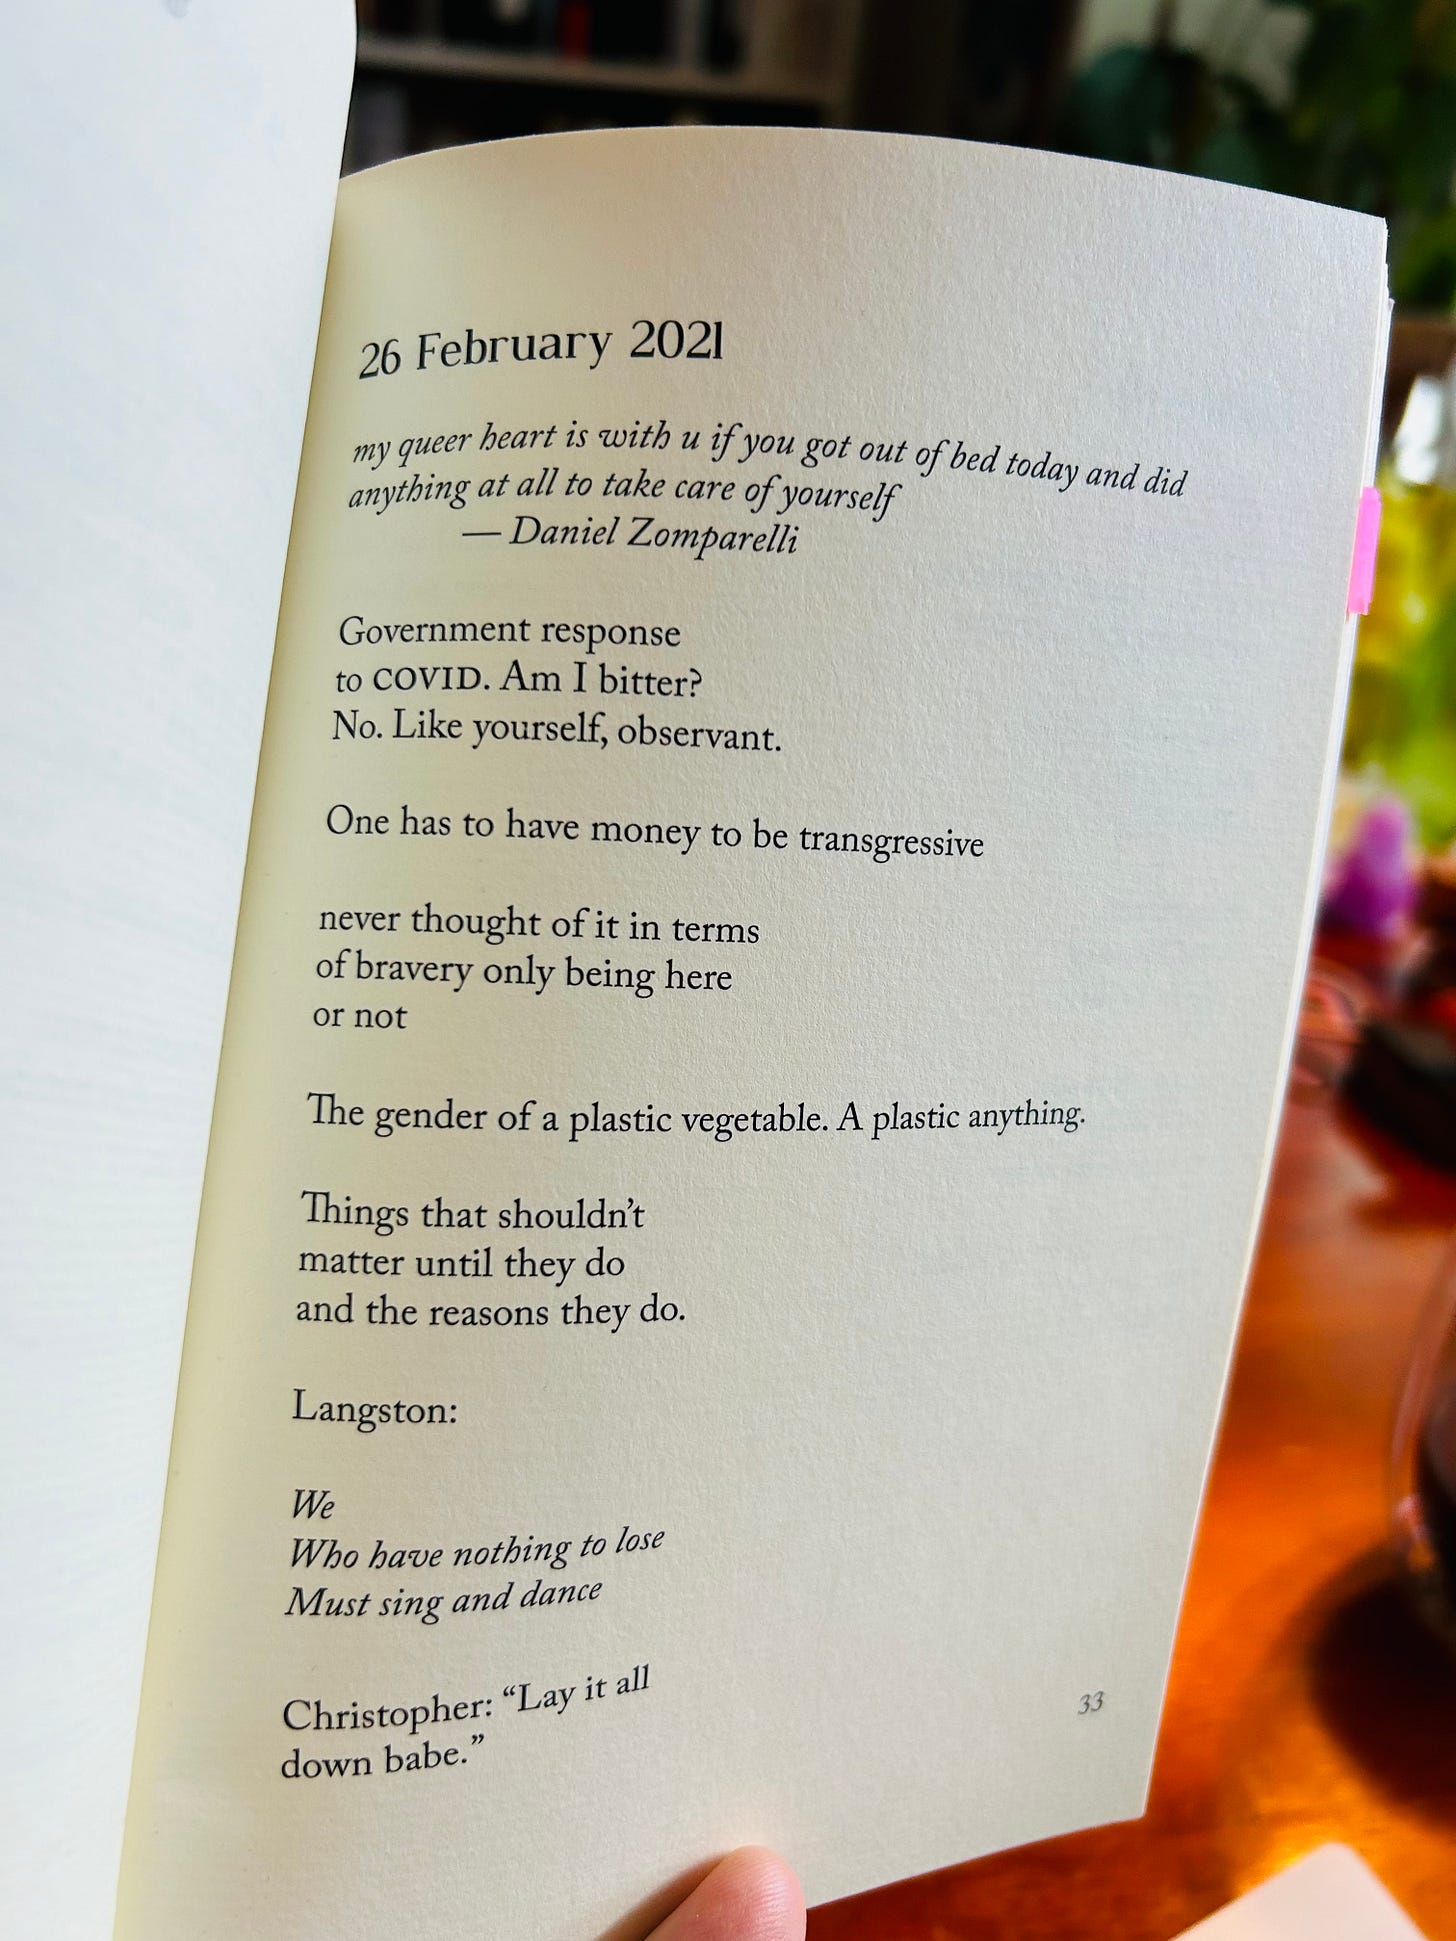 26 February 2021
my queer heart is with u if you got out of bed today and did
anything at all to take care of yourself
— Daniel Zomparelli
Government response
to COVID. Am I bitter?
No. Like yourself, observant.
One has to have money to be transgressive
never thought of it in terms
of bravery only being here
or not
The gender of a plastic vegetable. A plastic anything.
Things that shouldn’t
matter until they do
and the reasons they do.
Langston:
We
Who have nothing to lose
Must sing and dance
Christopher: “Lay it all
down babe.”
33